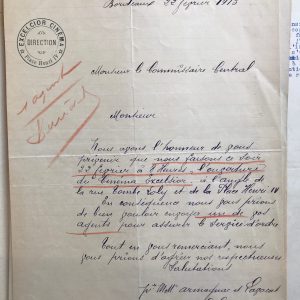 Bordeaux 22 février 1913
EXCELSIOR CINEMA
DIRECTION
Place Henri IV
Monsieur le Commissaire Central
1 agent
Monsieur
Nous avons l'honneur de vous
prévenir que nous faisons ce soir
22 février à 8 heures, l'ouverture
du Cinema Excelsior à l'angle de
la rue Combe et de la Place Henri IV
En conséquence nous vous prions
de bien vouloir un de vos
agents pour assurer le service d'ordre
Tout en vous remerciant, nous
vous prions d'agréer nos respectueuses
Salutations